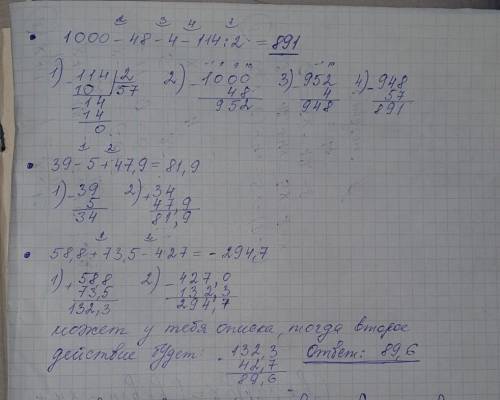 2 3 4 1
1000 - 48 - 4 - 114 : 2 = 891
1) - 114 | 2 2) - 1000 3) - 952 4) - 948
10 | 57 48 4 57
- 14 952 948 891
14
0
1 2
39 - 5 + 47,9 = 81,9
1) - 39 2) + 34
5 47,9
34 81,9
58,8 + 73,5 - 427 = - 294,7
1) + 58,8 2) - 427,0
73,5 132,3
132,3 294,7
может у тебя описка, тогда второе
действие будет - 132,3 Ответ: 89,6
42,7
89,6